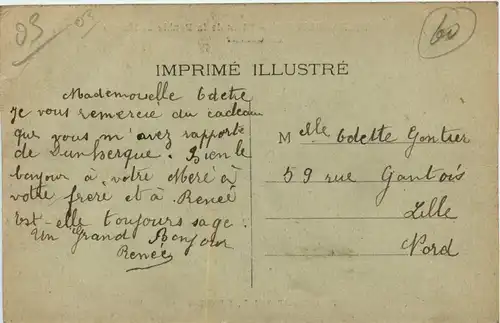 03 03
60
IMPRIMÉ ILLUSTRÉ
Mademoiselle Odette
Je vous remercie du cadeau
que vous m'avez rapporté
de Dunkerque. Bien le
bonjour à votre Meré à
votre freré et à Reneé
Est-elle toujours sage.
Un Grand Bonjour
Reneé
Mlle Odette Gontier
59 rue Gantois
Lille
Nord